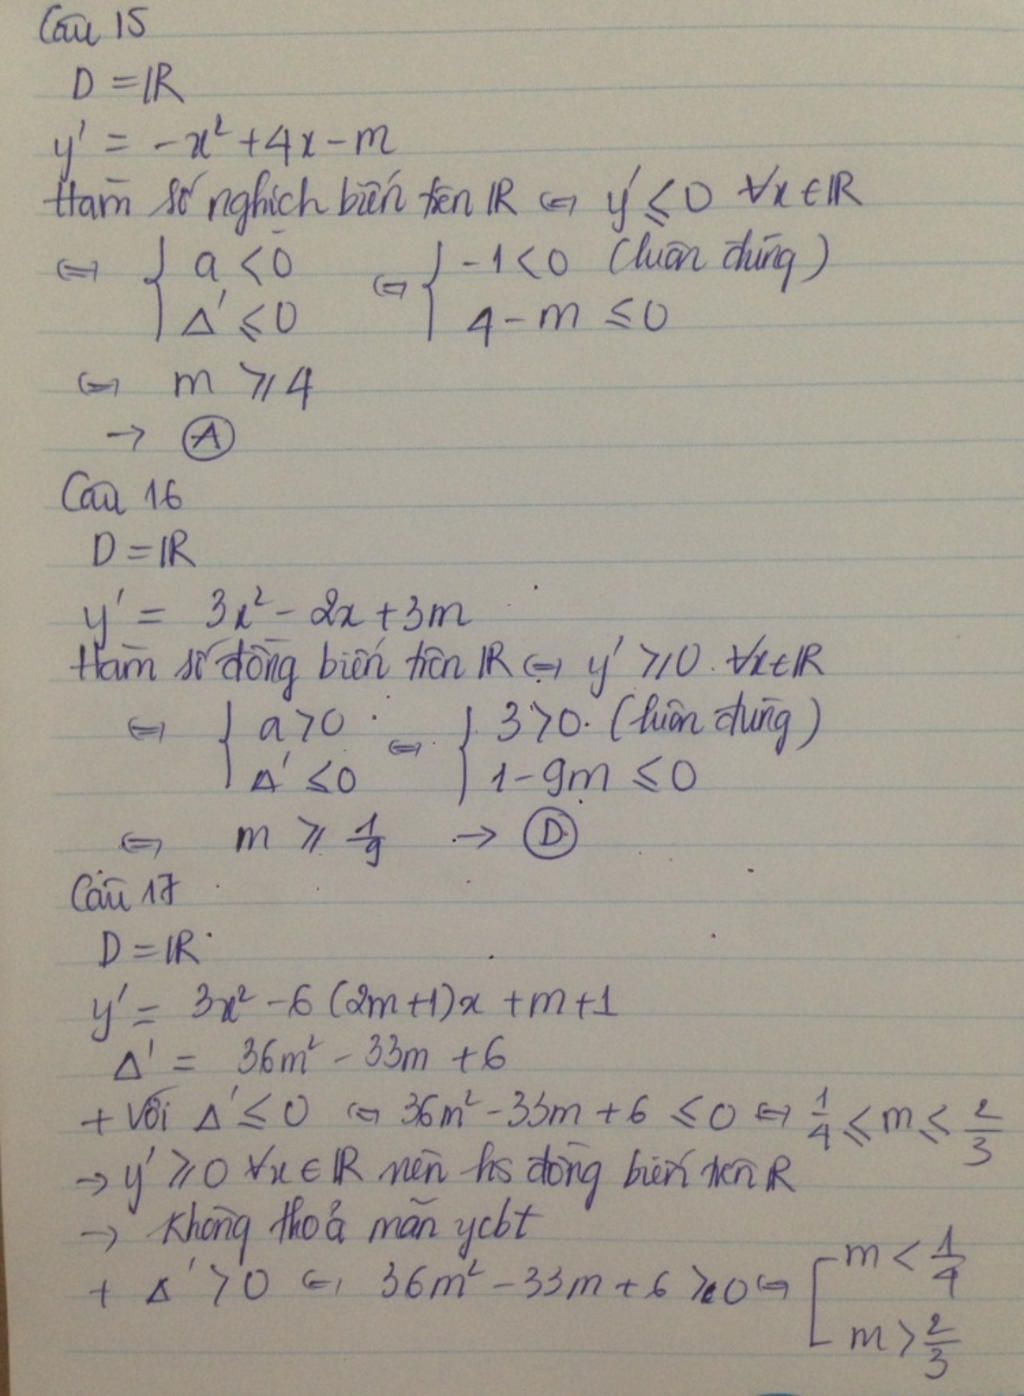 Câu 15
D = ℝ
y' = -x² + 4x - m
Hàm số nghịch biến trên ℝ ⇔ y' ≤ 0 ∀x ∈ ℝ
⇔ { a < 0 ⇔ { -1 < 0 (luôn đúng)
Δ' ≤ 0 4 - m ≤ 0
⇔ m ≥ 4
→ Ⓐ
Câu 16
D = ℝ
y' = 3x² - 2x + 3m
Hàm số đồng biến trên ℝ ⇔ y' ≥ 0 ∀x ∈ ℝ
⇔ { a > 0 ⇔ { 3 > 0 (luôn đúng)
Δ' ≤ 0 1 - 9m ≤ 0
⇔ m ≥ 1/9 → Ⓓ
Câu 17
D = ℝ
y' = 3x² - 6(2m+1)x + m + 1
Δ' = 36m² - 33m + 6
+ Với Δ' ≤ 0 ⇔ 36m² - 33m + 6 ≤ 0 ⇔ 1/4 ≤ m ≤ 2/3
→ y' ≥ 0 ∀x ∈ ℝ nên hs đồng biến trên ℝ
→ Không thoả mãn ycbt
+ Δ' > 0 ⇔ 36m² - 33m + 6 > 0 ⇔ [ m < 1/4
m > 2/3